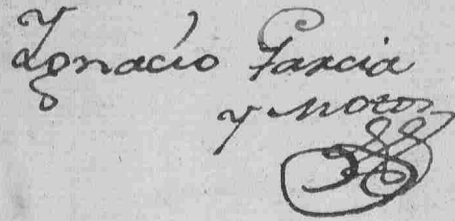 Ignacio Garcia
y Motos